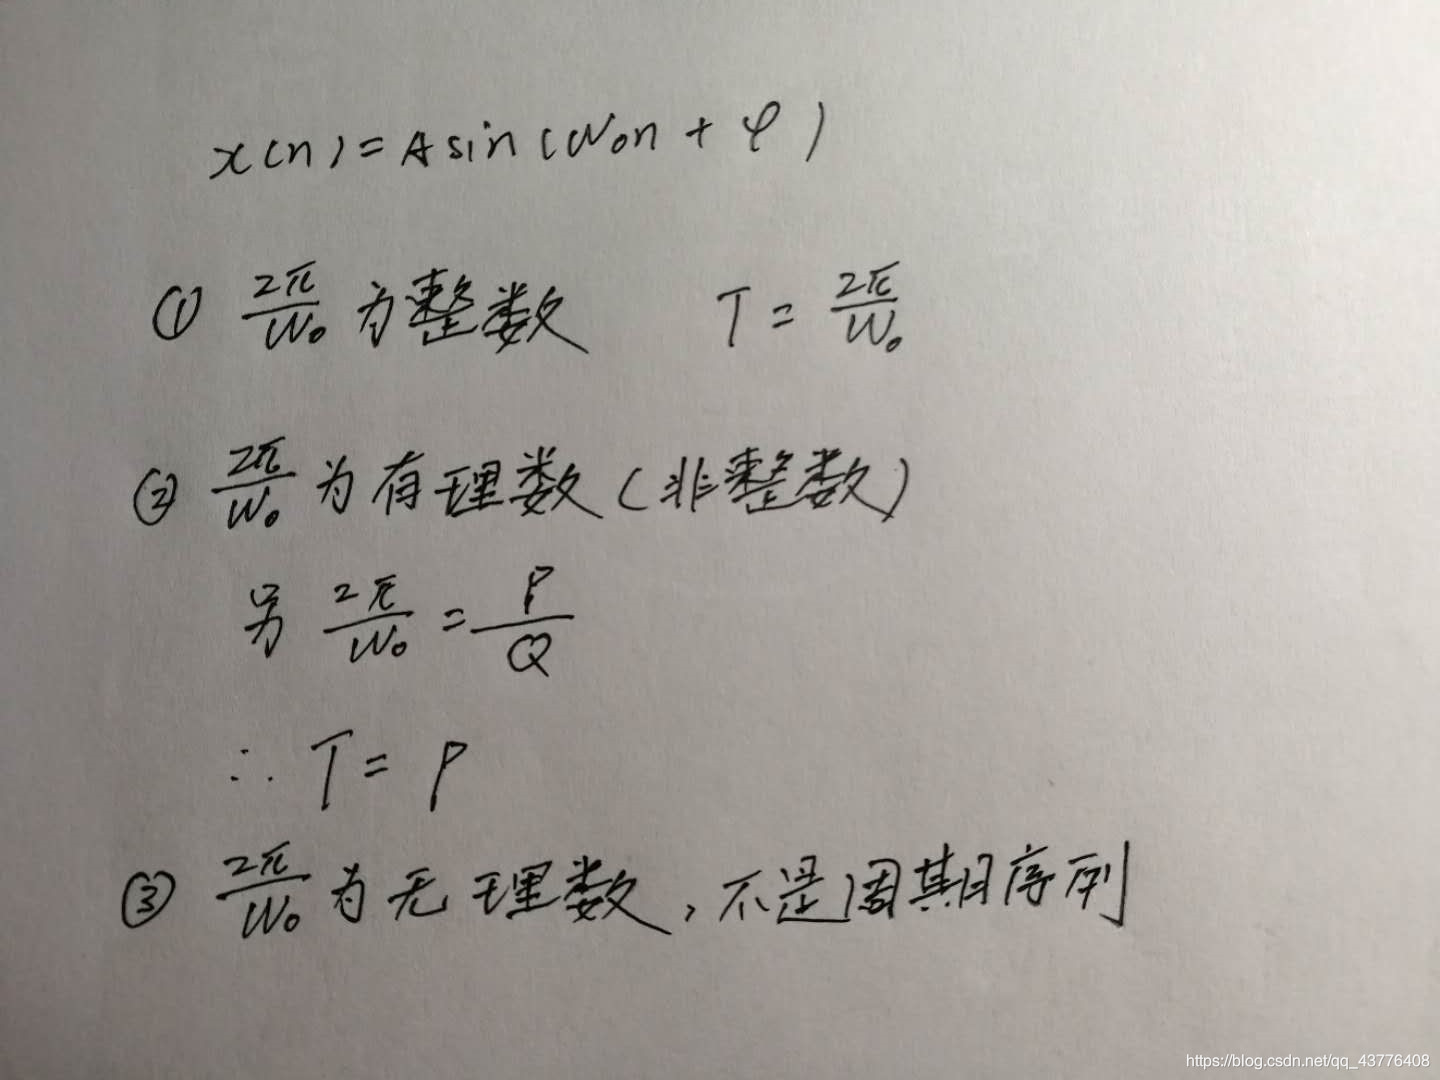 x(n)=Asin(W₀n+φ)
① 2π/W₀ 为整数 T=2π/W₀
② 2π/W₀ 为有理数(非整数)
另 2π/W₀ = P/Q
∴ T=P
③ 2π/W₀ 为无理数,不是周期序列
https://blog.csdn.net/qq_43776408